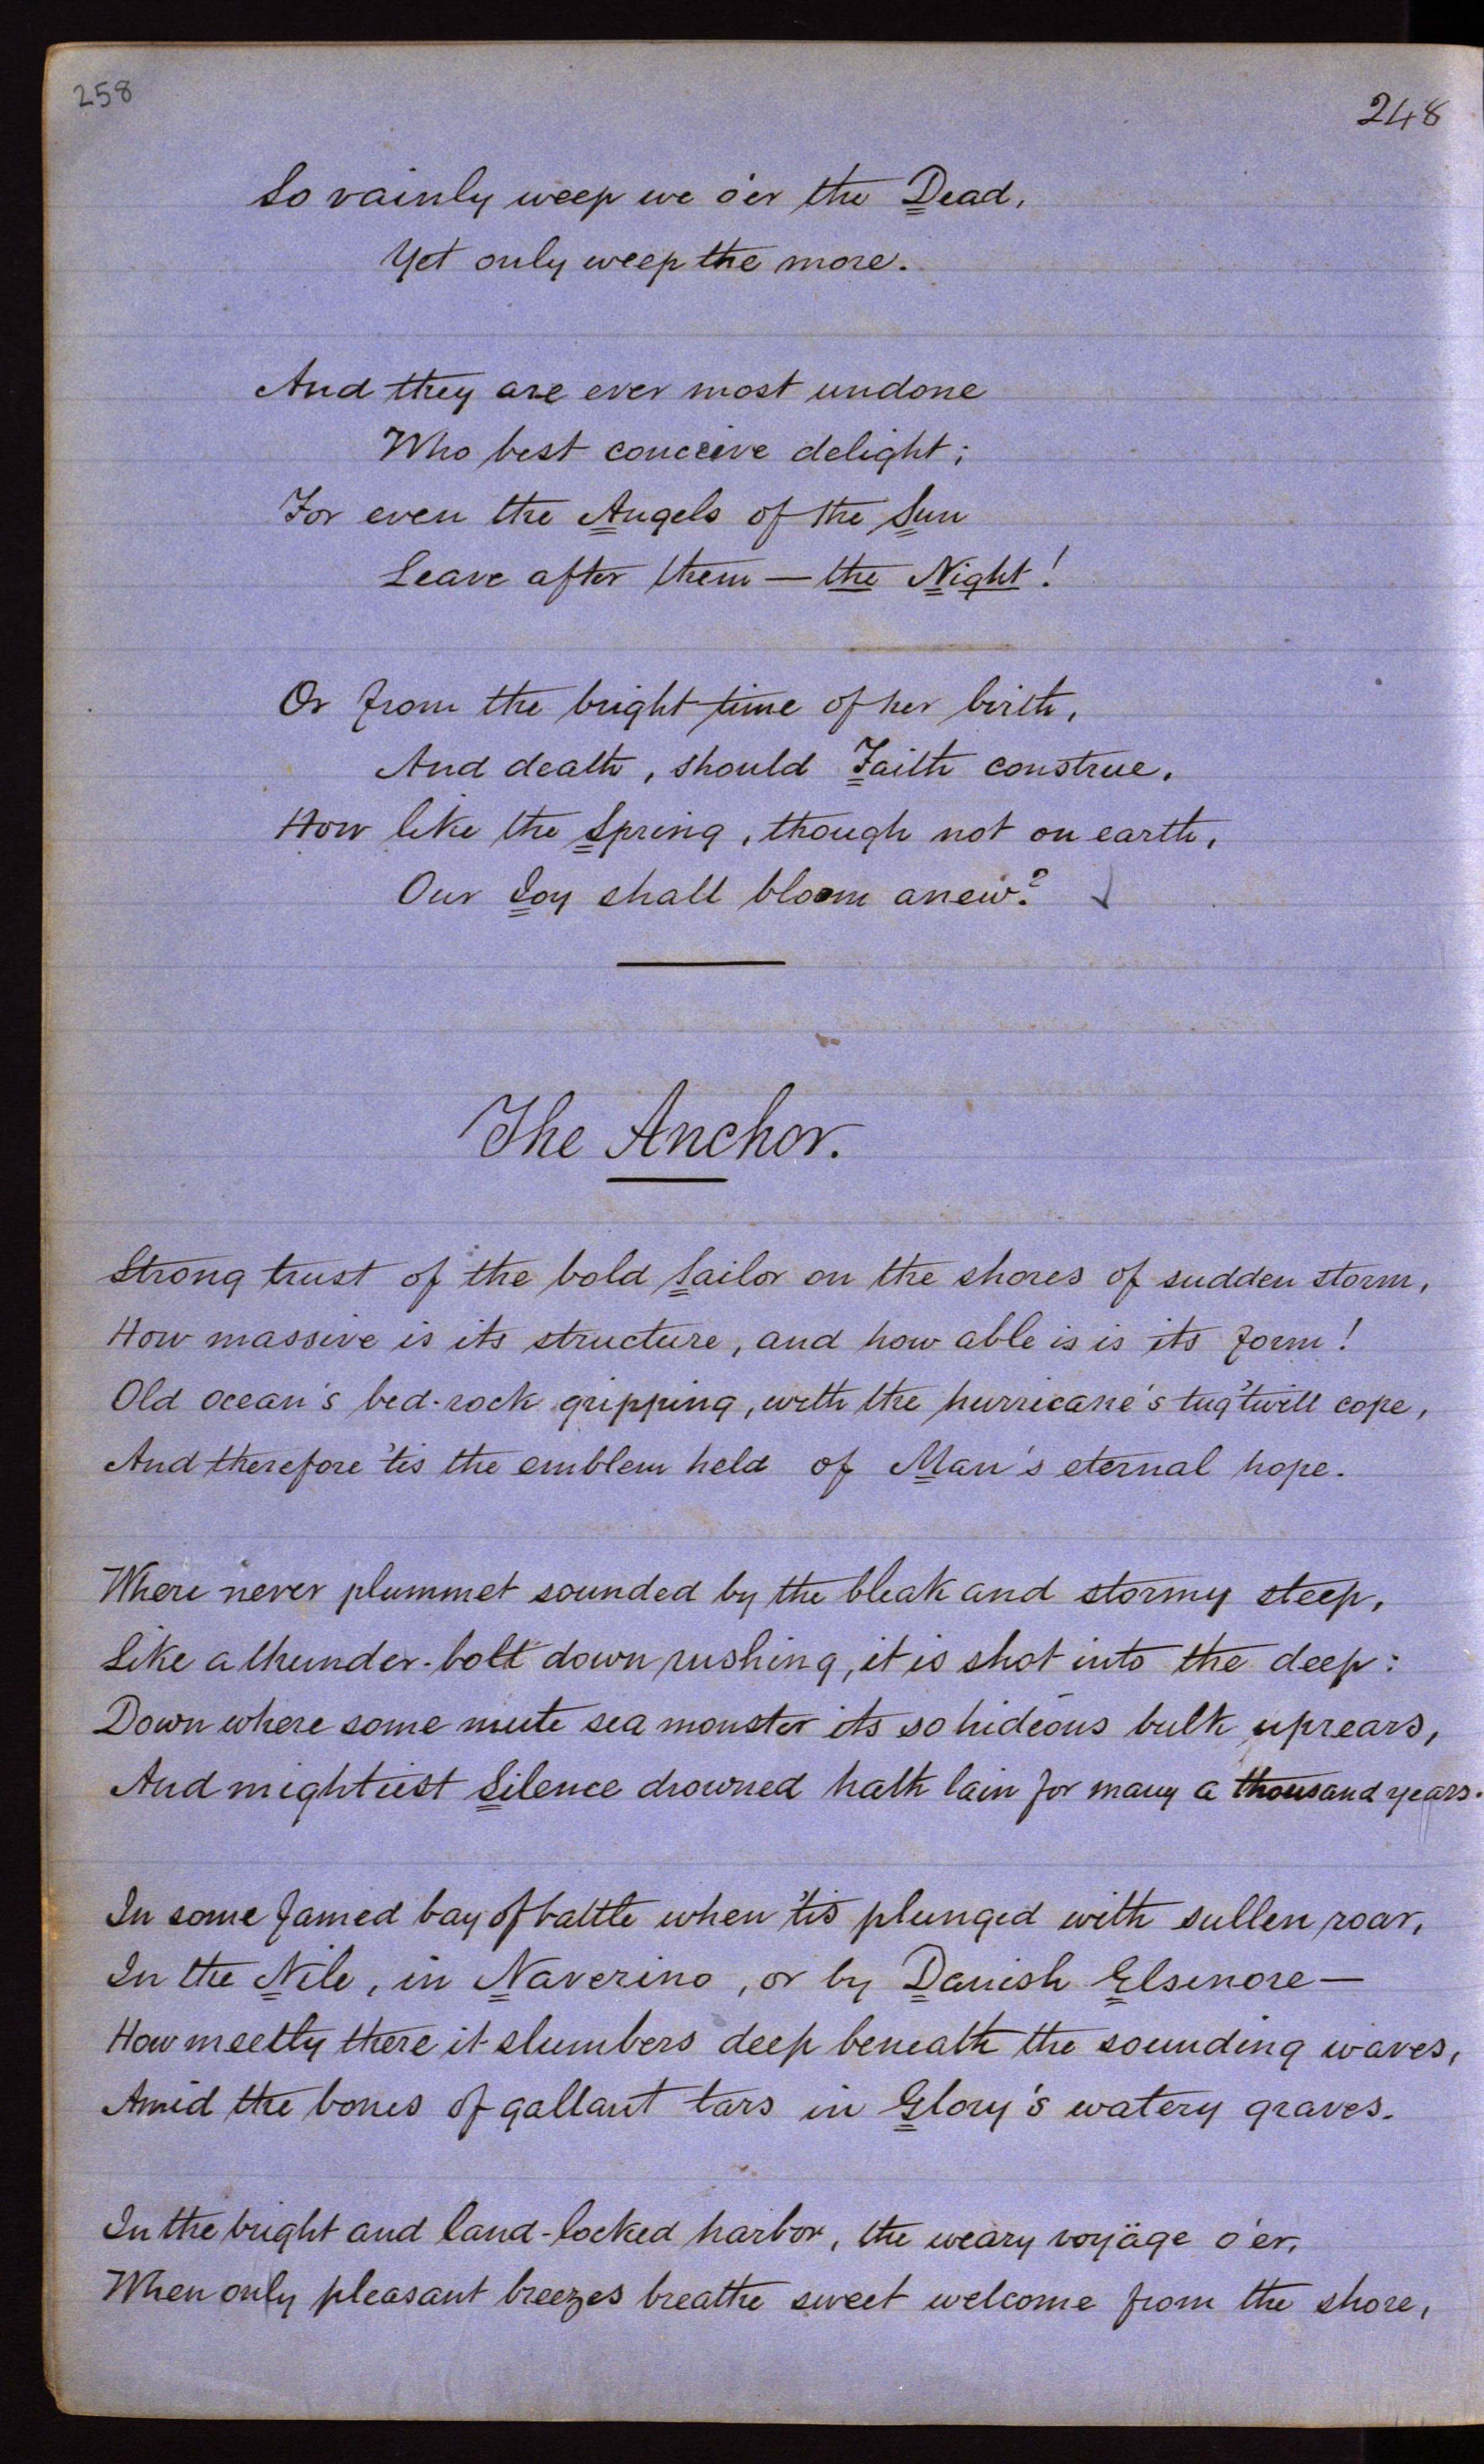 258
248
So vainly weep we o'er the Dead,
Yet only weep the more.
And they are ever most undone
Who best conceive delight;
For even the Angels of the Sun
Leave after them — the Night!
Or from the bright time of her birth,
And death, should Faith construe,
How like the Spring, though not on earth,
Our Joy shall bloom anew?
The Anchor.
Strong trust of the bold Sailor on the shores of sudden storm,
How massive is its structure, and how able is is its form!
Old ocean's bed-rock gripping, with the hurricane's tug 'twill cope,
And therefore 'tis the emblem held of Man's eternal hope.
Where never plummet sounded by the bleak and stormy steep,
Like a thunder-bolt down rushing, it is shot into the deep:
Down where some mute sea monster its so hideous bulk uprears,
And mightiest Silence drowned hath lain for many a thousand years.
In some famed bay of battle when 'tis plunged with sullen roar,
In the Nile, in Naverino, or by Danish Elsinore —
How meetly there it slumbers deep beneath the sounding waves,
Amid the bones of gallant tars in Glory's watery graves.
In the bright and land-locked harbor, the weary voyäge o'er,
When only pleasant breezes breathe sweet welcome from the shore,